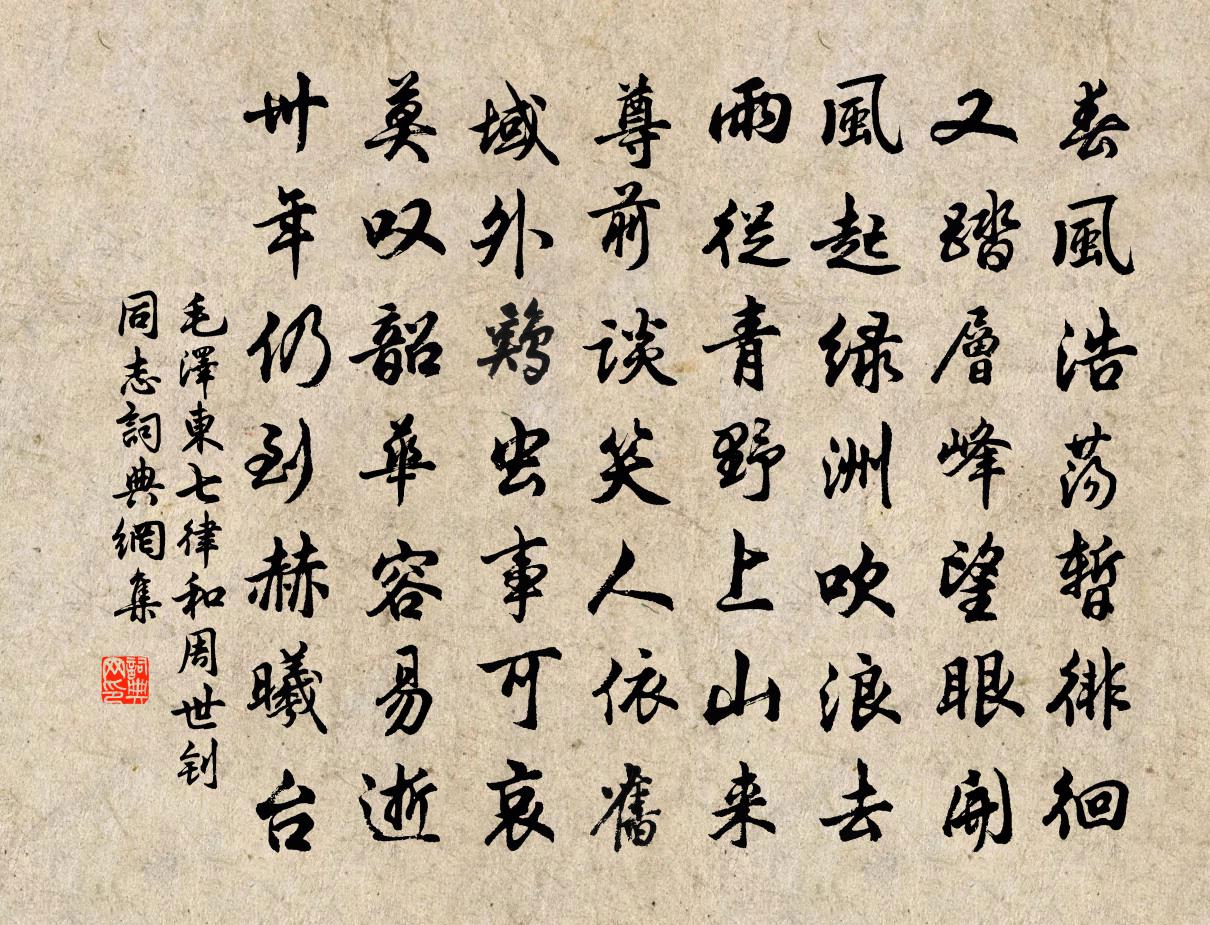 春風浩荡暫徘徊
又踏層峰望眼開
風起绿洲吹浪去
雨從青野上山来
尊前談笑人依舊
域外鷄虫事可哀
莫叹韶華容易逝
卅年仍到赫曦台
毛澤東七律和周世钊
同志詞典網集
詞典
网印